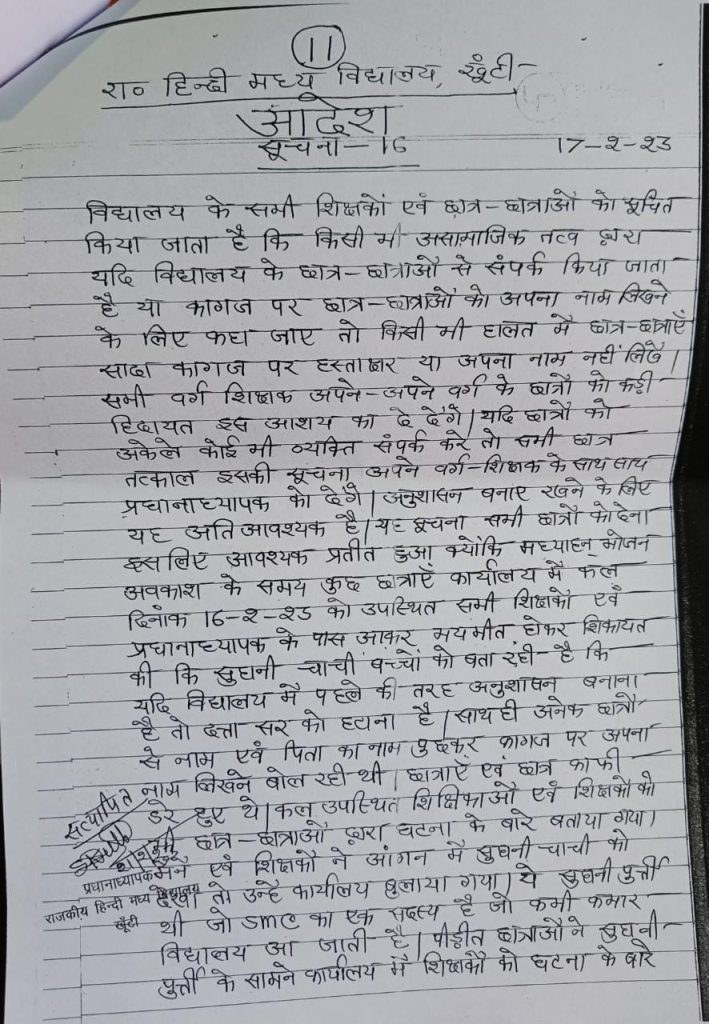 11
रा० हिन्दी मध्य विद्यालय, खूँटी-
आदेश
सूचना-16
17-2-23
विद्यालय के सभी शिक्षकों एवं छात्र-छात्राओं को सूचित
किया जाता है कि किसी भी असामाजिक तत्व द्वारा
यदि विद्यालय के छात्र-छात्राओं से संपर्क किया जाता
है या कागज पर छात्र-छात्राओं को अपना नाम लिखने
के लिए कहा जाए तो किसी भी हालत में छात्र-छात्राएँ
सादा कागज पर हस्ताक्षर या अपना नाम नहीं लिखें।
सभी वर्ग शिक्षक अपने-अपने वर्ग के छात्रों को कड़ी
हिदायत इस आशय का दे देंगे। यदि छात्रों को
अकेले कोई भी व्यक्ति संपर्क करे तो सभी छात्र
तत्काल इसकी सूचना अपने वर्ग-शिक्षक के साथ साथ
प्रधानाध्यापक को देंगे। अनुशासन बनाए रखने के लिए
यह अति आवश्यक है। यह सूचना सभी छात्रों को देना
इस लिए आवश्यक प्रतीत हुआ क्योंकि मध्याहन् भोजन
अवकाश के समय कुछ छात्राएँ कार्यालय में कल
दिनांक 16-2-23 को उपस्थित सभी शिक्षकों एवं
प्रधानाध्यापक के पास आकर भयभीत होकर शिकायत
की कि सुघनी चाची बच्चों को बता रही-है कि
यदि विद्यालय में पहले की तरह अनुशासन बनाना
है तो दत्ता सर को हटाना है। साथ ही अनेक छात्रों
से नाम एवं पिता का नाम पुछकर कागज पर अपना
नाम लिखने बोल रही थी। छात्राएँ एवं छात्र काफी
डरे हुए थे। कल उपस्थित शिक्षिकाओं एवं शिक्षकों को
छात्र-छात्राओं द्वारा घटना के बारे बताया गया।
मैंने एवं शिक्षकों ने आंगन में सुघनी-चाची को
देखा तो उन्हें कार्यालय बुलाया गया। ये सुघनी पुर्त्ती
थी जो smc का एक सदस्य है जो कभी कभार
विद्यालय आ जाती है। पीड़ीत छात्राओं ने सुघनी
पुर्त्ती के सामने कार्यालय में शिक्षकों को घटना के बारे
सत्यापित
प्रधानाध्यापक
राजकीय हिन्दी मध्य विद्यालय
खूँटी